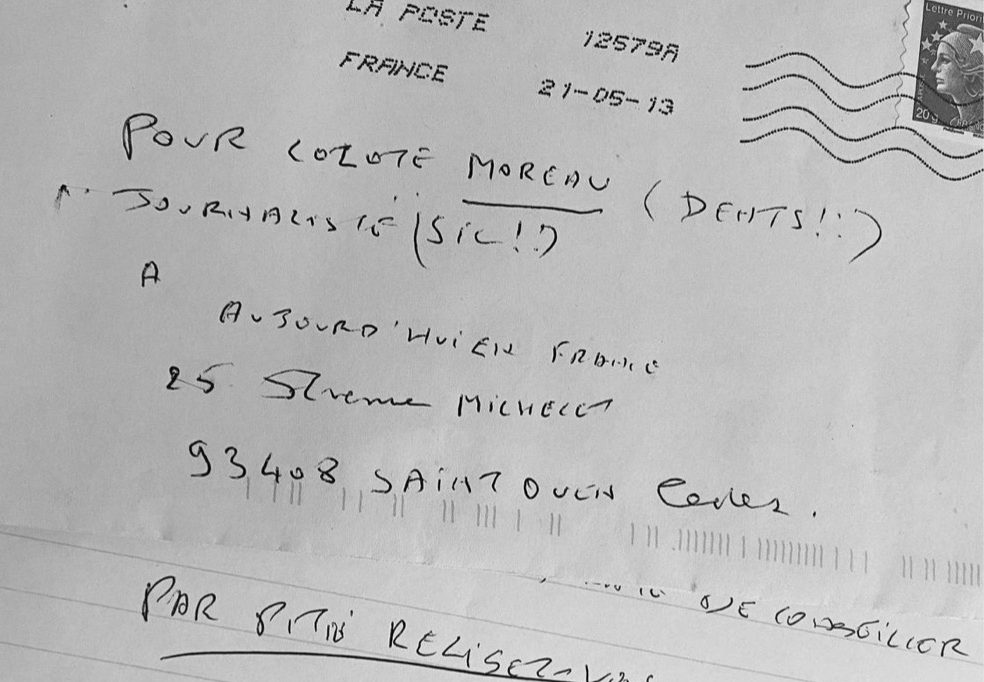 LA POSTE 12579A
FRANCE 21-05-13
Lettre Priori
20g
POUR MOREAU (DENTS!!)
JOURNALISTE (SIC!!)
A
AUJOURD'HUI EN FRANCE
25 MICHELET
93408 SAINT OUEN Cedex.
DE CONSEILLER
PAR PITIÉ RELISEZ-VOUS